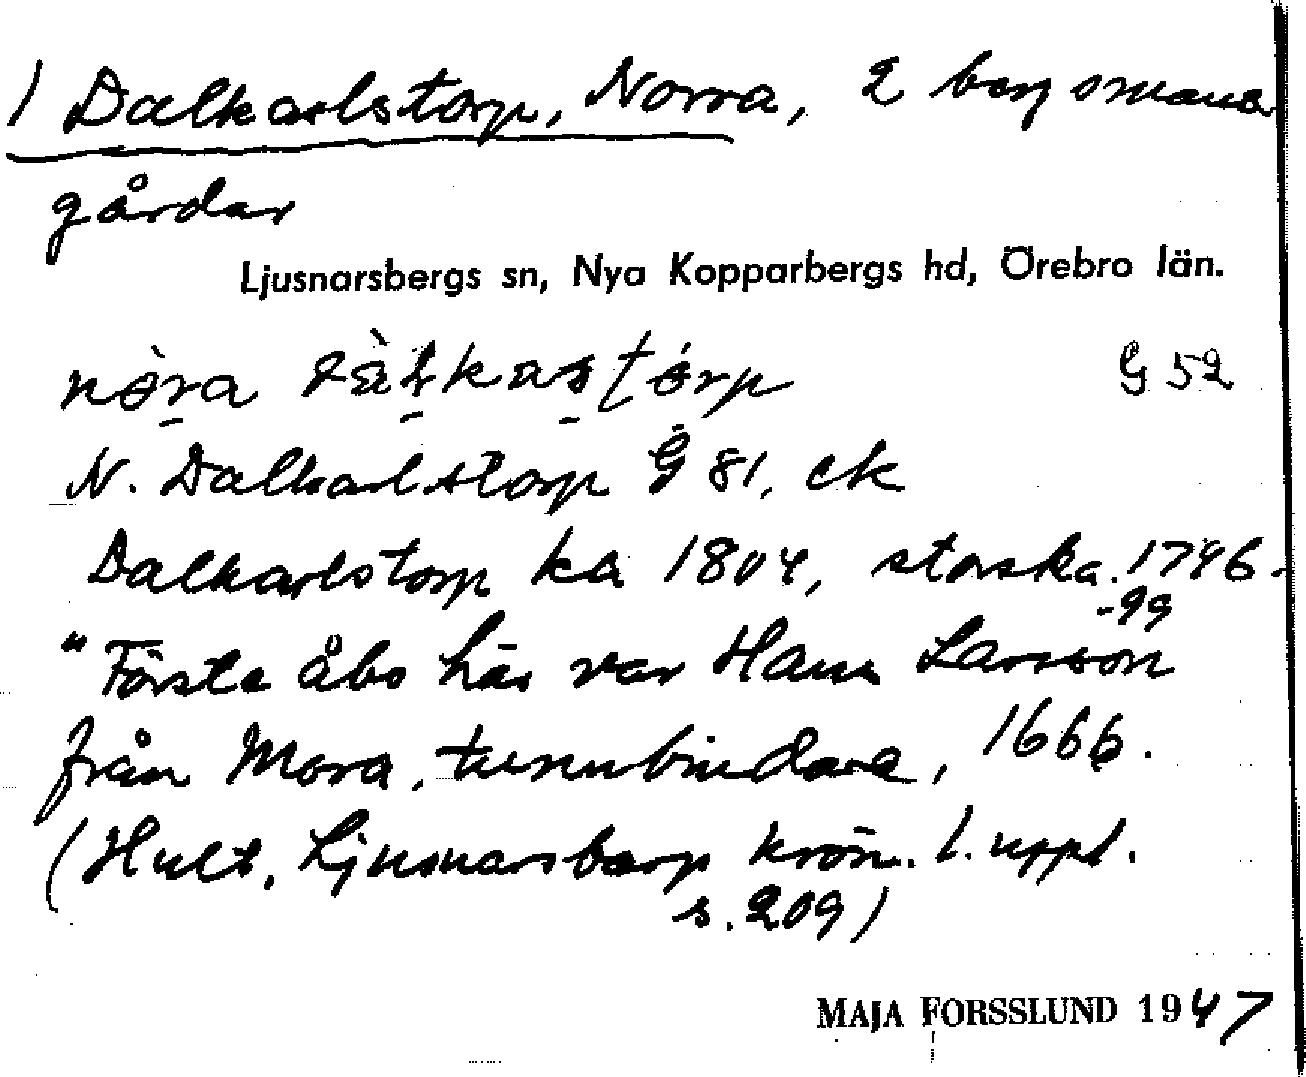 / Dalkarlstorp, Norra, 2 bergsmans
gårdar
Ljusnarsbergs sn, Nya Kopparbergs hd, Örebro län.
G 52
N. Dalkarlstorp G 81, ek
Dalkarlstorp ka 1804, storska. 1796-
-99
"Första åbo här var Hans Larsson
från Mora, tunnbindare, 1666.
(Hult, Ljusnarsbergs krön. 1. uppl.
s. 209)
MAJA FORSSLUND 1947